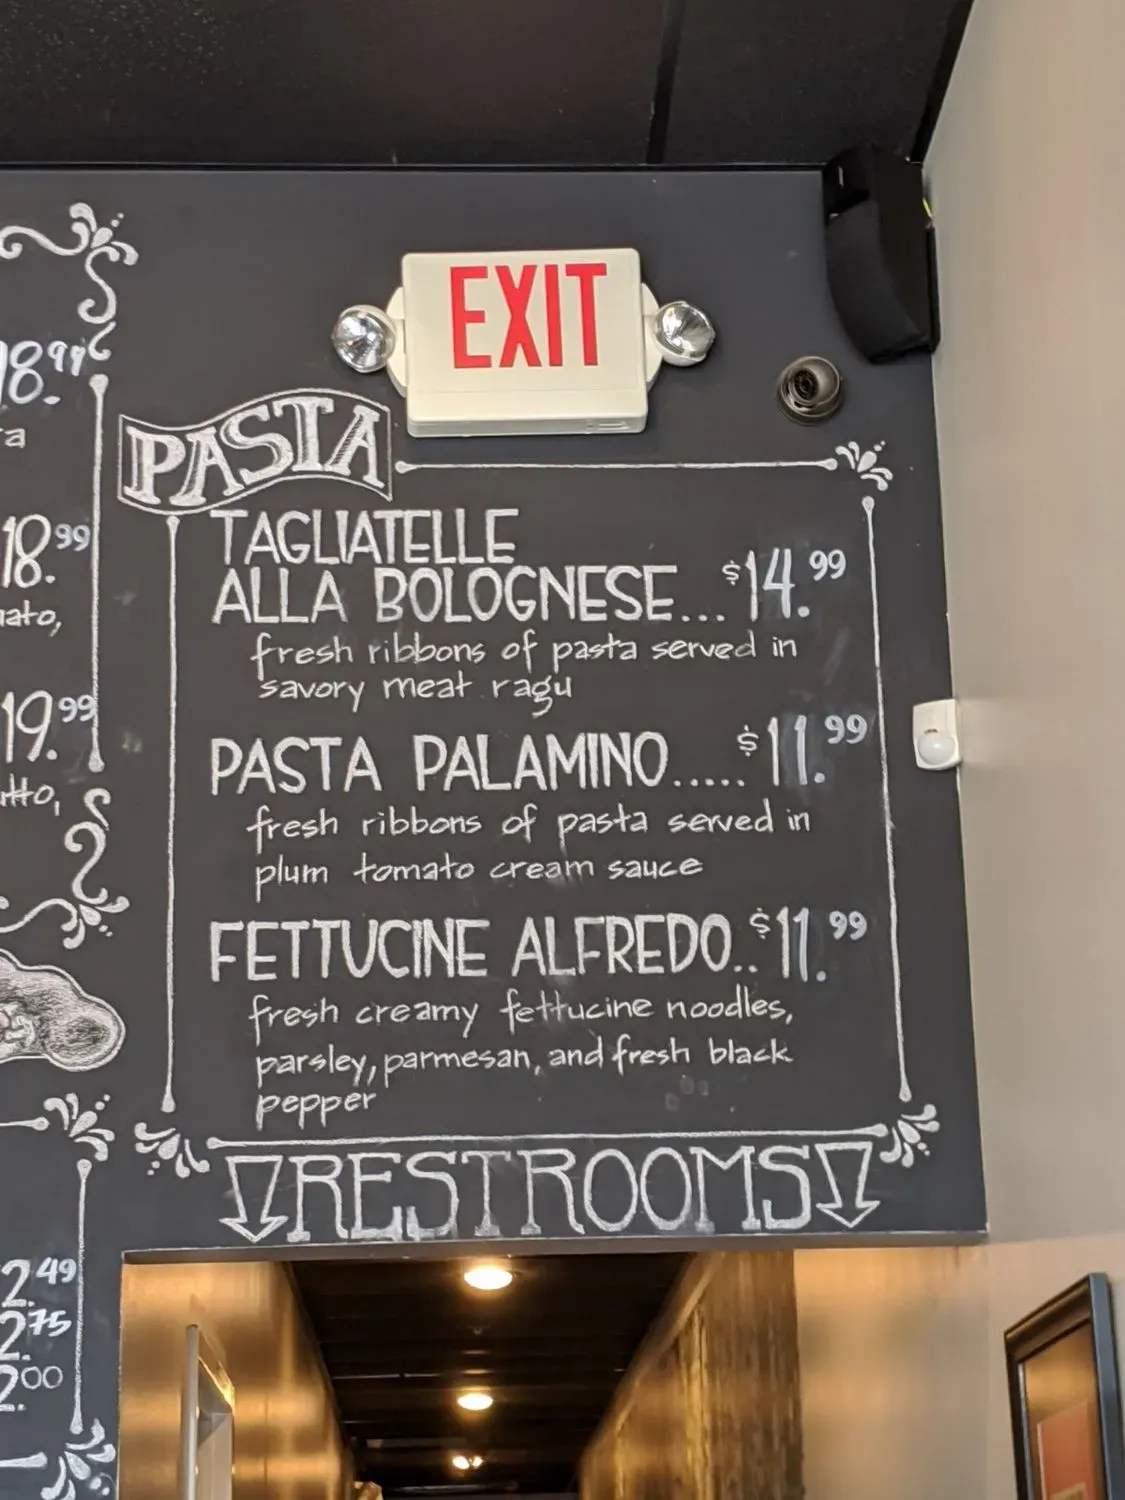 EXIT
PASTA
TAGLIATELLE
ALLA BOLOGNESE... $14.99
fresh ribbons of pasta served in
savory meat ragu
PASTA PALAMINO..... $11.99
fresh ribbons of pasta served in
plum tomato cream sauce
FETTUCINE ALFREDO.. $11.99
fresh creamy fettucine noodles,
parsley, parmesan, and fresh black
pepper
RESTROOMS
18.99
18.99
19.99
2.49
2.75
2.00